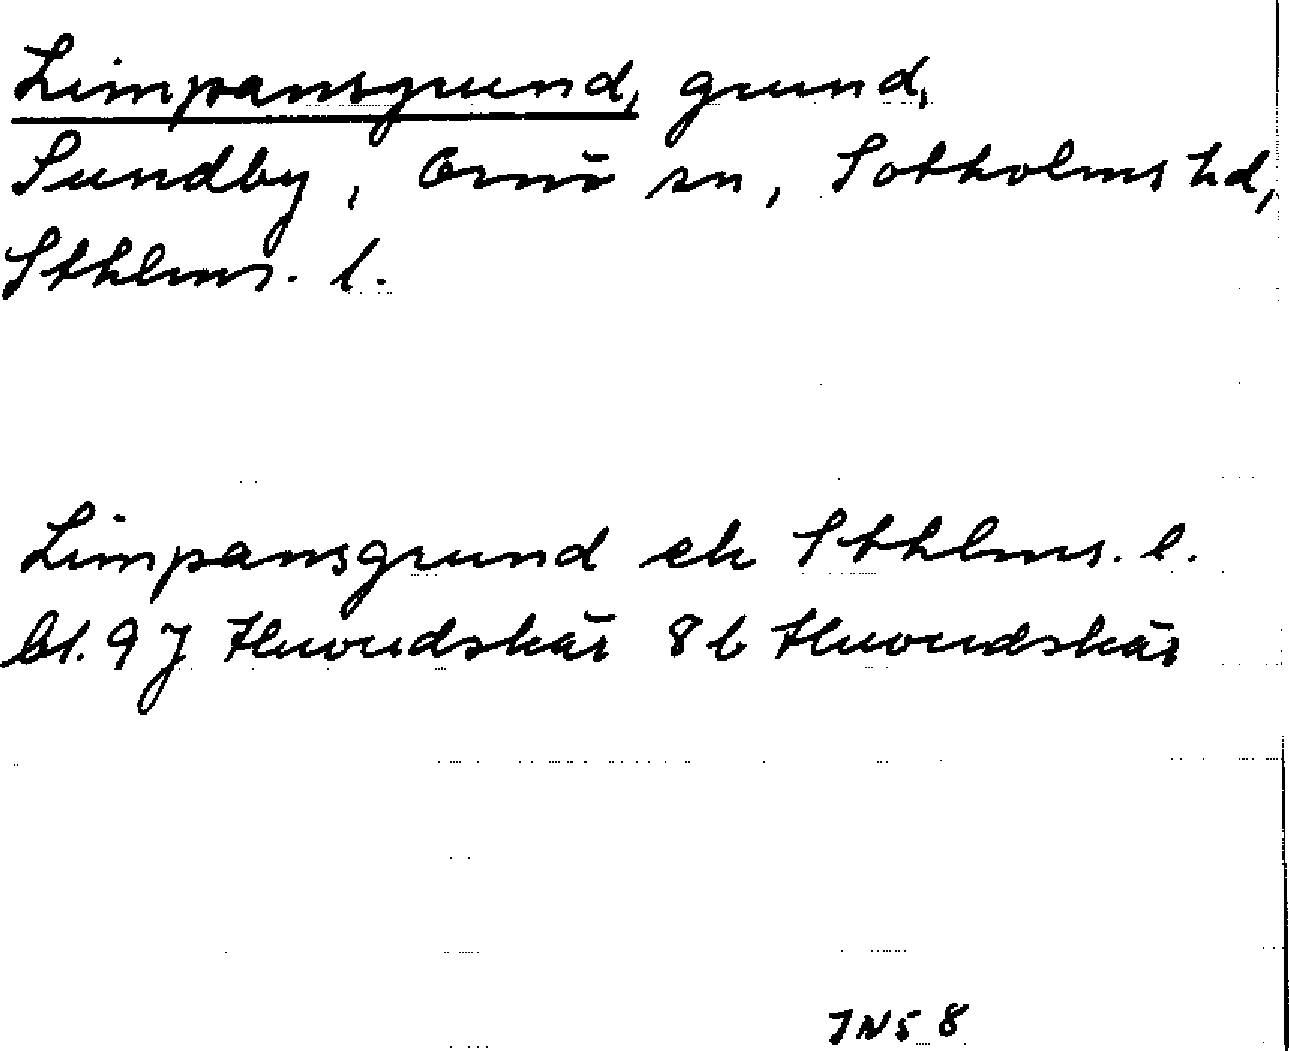 Limpansgrund, grund,
Sundby, Ornö sn, Sotholms hd,
Sthlms. l.
Limpansgrund ek Sthlms. l.
bl. 9 J Huvudskär 8 b Huvudskär
JNS 8